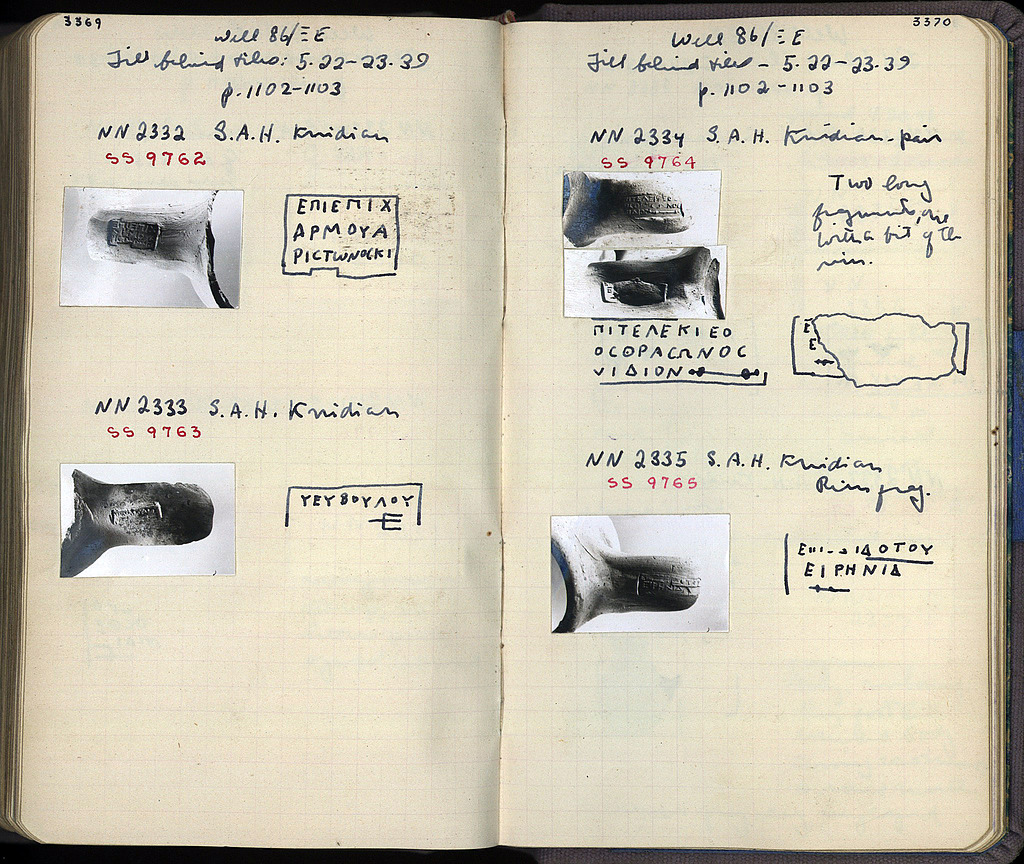 3369
Well 86/ΞE
Fill behind tiles: 5.22-23.39
p. 1102-1103
NN 2332 S.A.H. Knidian
SS 9762
ΕΠΙΕΠΙΧ
ΑΡΜΟΥΑ
ΡΙCΤWΝΟCΚΙ
NN 2333 S.A.H. Knidian
SS 9763
ΥΕΥΒΟΥΛΟΥ
Ε
3370
Well 86/ΞE
Fill behind tiles - 5.22-23.39
p. 1102-1103
NN 2334 S.A.H. Knidian-pair
SS 9764
Two long
fragments, one
with a bit of the
rim.
ΠΙΤΕΛΕΚΙΕΟ
ΟCΘΡΑCΩΝΟC
ΝΙΔΙΟΝ
Ε
Ε
NN 2335 S.A.H. Knidian
SS 9765
Rim frag.
ΕΠΙ-ΙΔΟΤΟΥ
ΕΙΡΗΝΙΔ